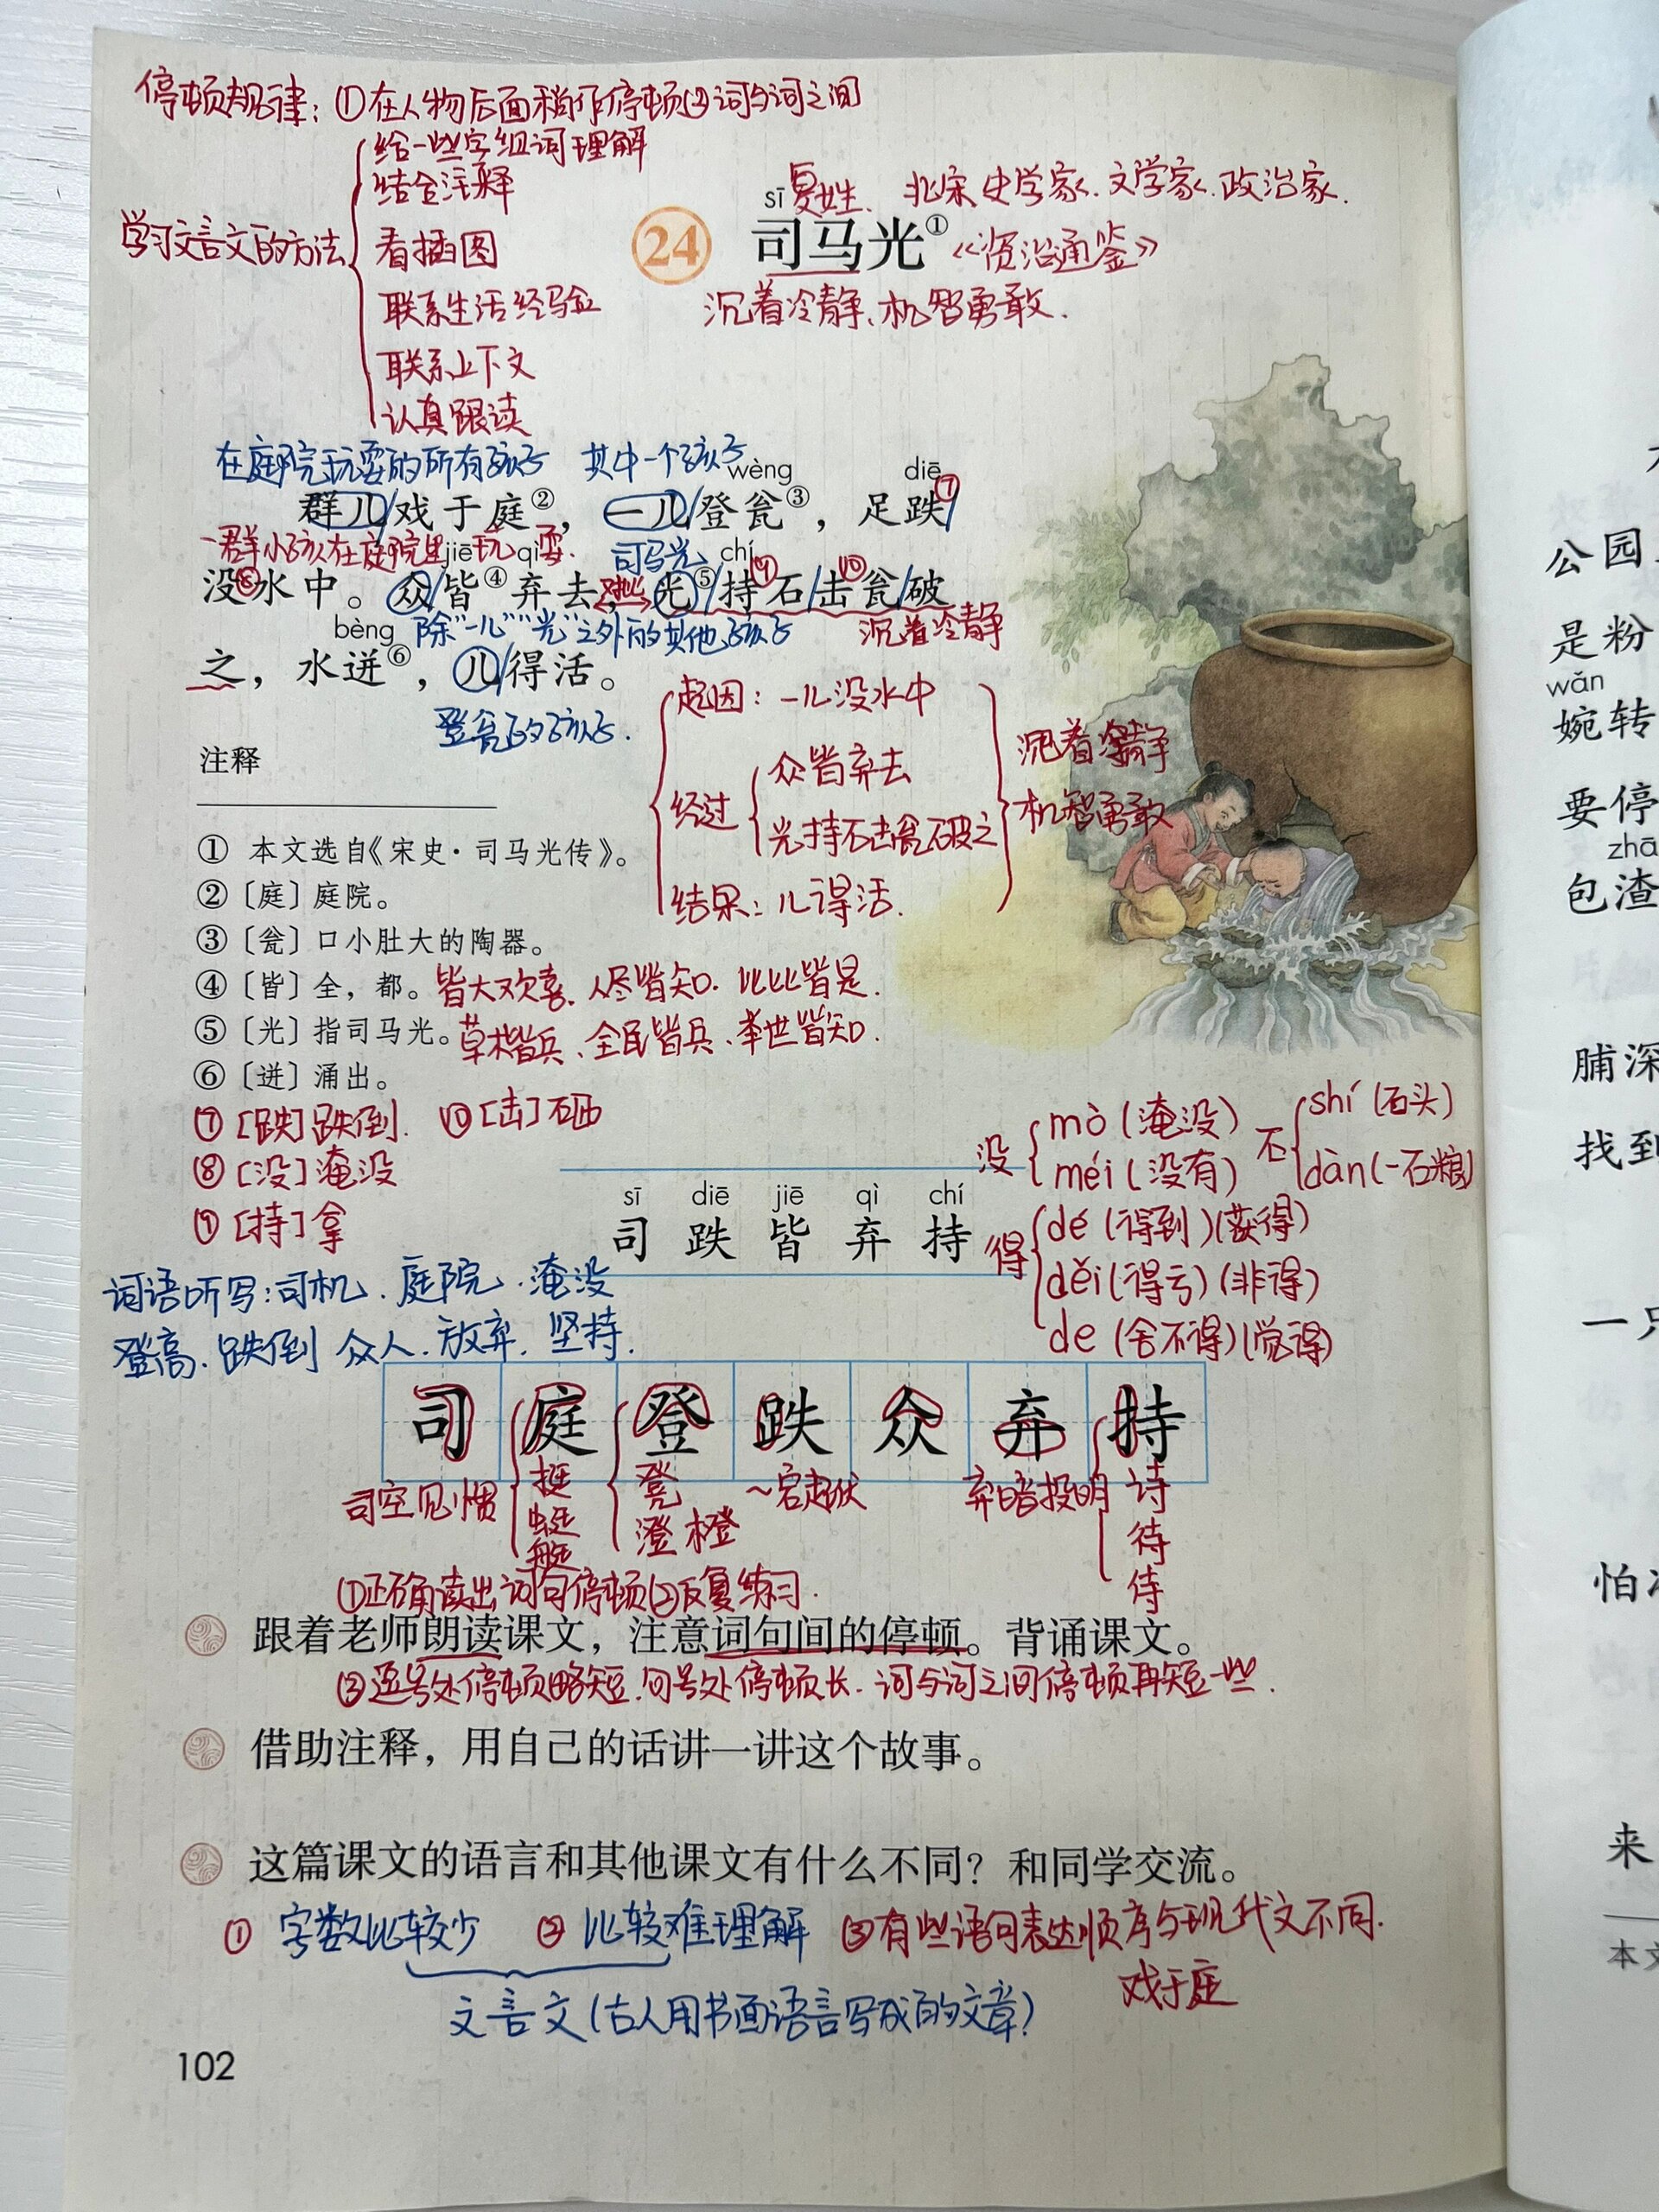 停顿规律：①在人物后面稍作停顿②词与词之间
学习文言文的方法
给一些字组词理解
结合注释
看插图
联系生活经验
联系上下文
认真跟读
sī
复姓、北宋史学家、文学家、政治家.
24 司马光①
《资治通鉴》
沉着冷静、机智勇敢.
在庭院玩耍的所有孩子 其中一个孩子
wèng diē
群儿/戏于庭②，一儿/登瓮③，足跌⑦/
一群小孩在庭院里玩耍.
司马光
jiē qì chí
没⑧水中。众/皆④弃去，光⑤/持⑨石/击⑩瓮/破
对比
bèng
除“一儿”“光”之外的其他孩子
沉着冷静
之，水迸⑥，儿/得活。
登瓮的孩子.
起因：一儿没水中
经过
众皆弃去
光持石击瓮破之
结果：儿得活.
沉着冷静
机智勇敢
注释
① 本文选自《宋史·司马光传》。
②〔庭〕庭院。
③〔瓮〕口小肚大的陶器。
④〔皆〕全，都。
皆大欢喜、人尽皆知. 比比皆是.
⑤〔光〕指司马光。
草木皆兵、全民皆兵、举世皆知.
⑥〔迸〕涌出。
⑦[跌]跌倒. ⑩[击]砸
⑧[没]淹没
⑨[持]拿
没 mò(淹没)
méi(没有)
石 shí(石头)
dàn(一石粮)
sī diē jiē qì chí
司 跌 皆 弃 持
得 dé(得到)(获得)
děi(得亏)(非得)
de(舍不得)(觉得)
词语听写：司机、庭院、淹没
登高、跌倒 众人、放弃、坚持.
司 庭 登 跌 众 弃 持
司空见惯
挺
蜓
艇
凳
澄 橙
~宕起伏
弃暗投明
诗
待
侍
①正确读出词句停顿②反复练习.
跟着老师朗读课文，注意词句间的停顿。背诵课文。
③逗号处停顿略短.句号处停顿长.词与词之间停顿再短一些.
借助注释，用自己的话讲一讲这个故事。
这篇课文的语言和其他课文有什么不同？和同学交流。
① 字数比较少 ② 比较难理解 ③有些语句表达顺序与现代文不同.
戏于庭
文言文(古人用书面语言写成的文章)
102
公园
是粉
wǎn
婉转
要停
zhā
包渣
脯深
找到
一只
怕
来
本文